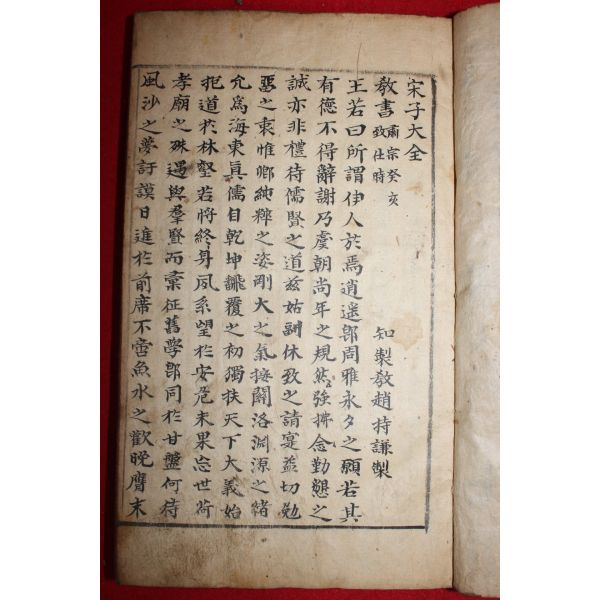 宋子大全
教書肅宗癸亥致仕時
知製教趙持謙製
王若曰所謂伊人於焉逍遥郎周雅永夕之願若其
有德不得辭謝乃虞朝尚年之規然強拂念勤懇之
誠亦非禮待儒賢之道玆姑副休致之請寔益切勉
惡之衷惟卿純粹之姿剛大之氣接關洛淵源之緒
允爲海東眞儒自乾坤飜覆之初獨扶天下大義始
抱道於林壑若將終身夙系望於安危未果忘世荷
孝廟之殊遇與羣賢而彙征舊學郎同於甘盤何待
風沙之夢訏謨日進於前席不啻魚水之歡晩膺末